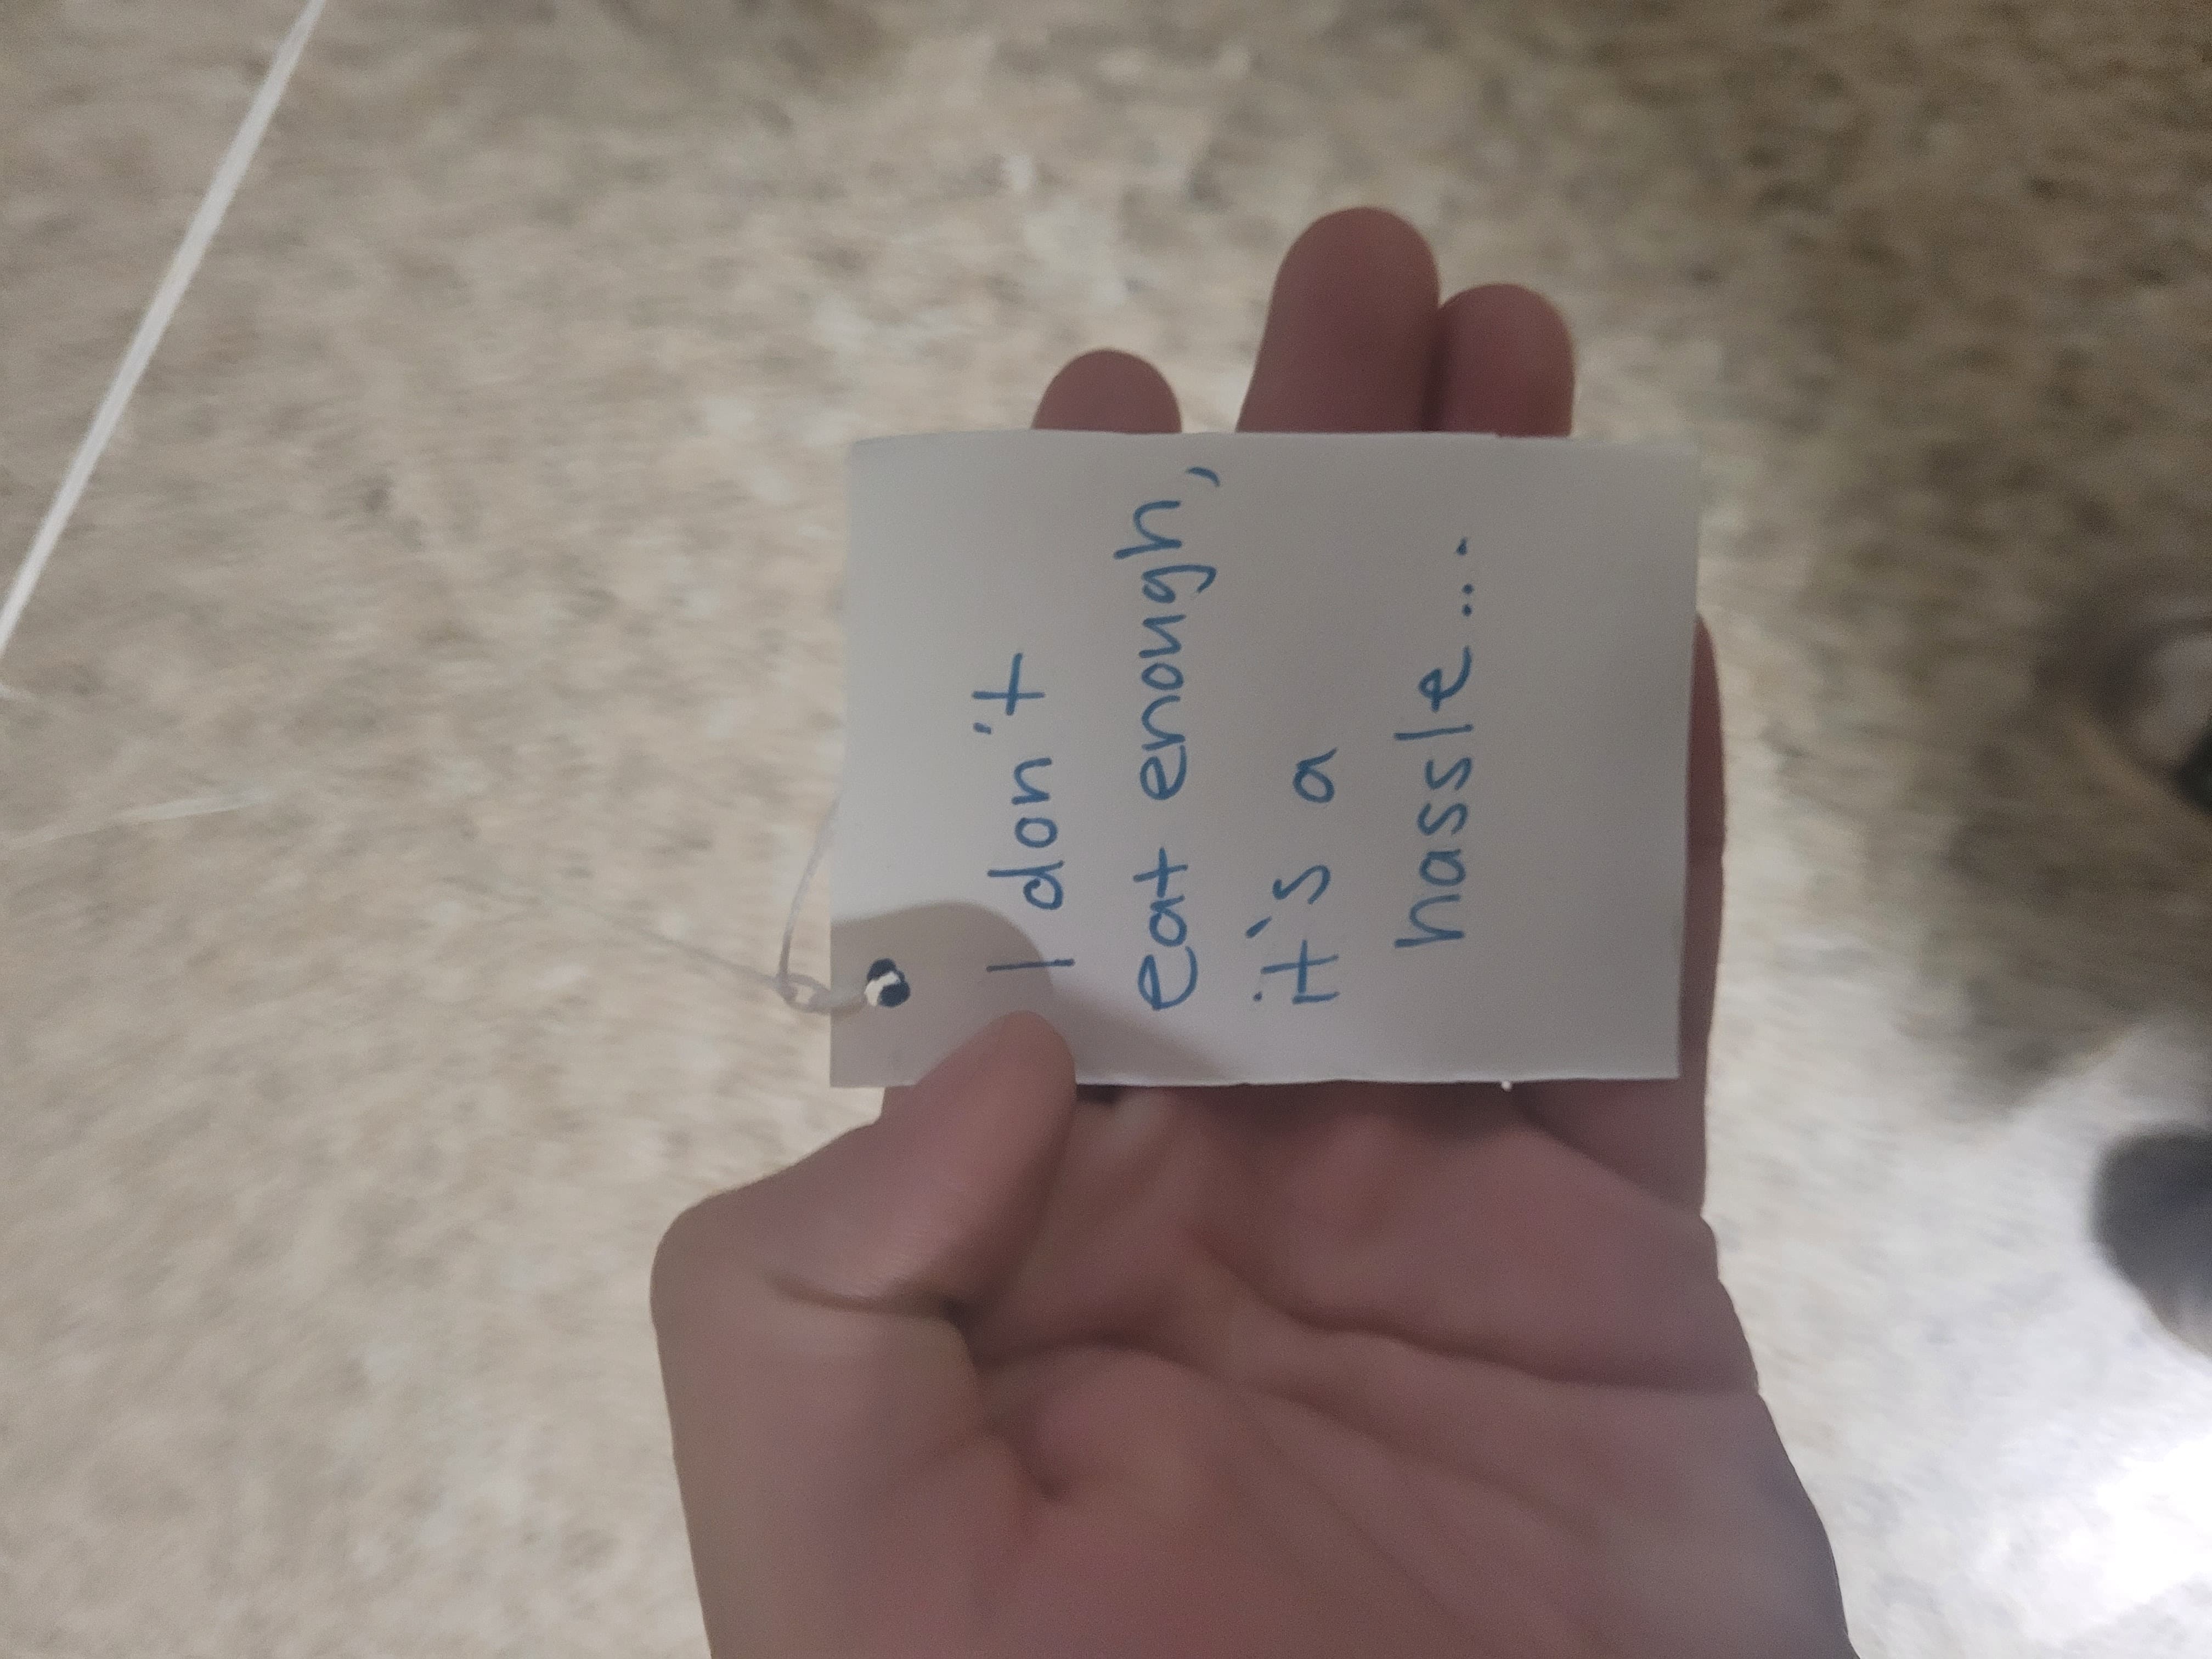 I don't
eat enough,
it's a
hassle...